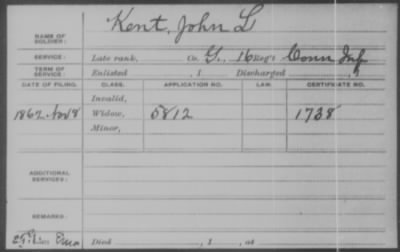 Kent, John L
NAME OF SOLDIER:
SERVICE: Late rank, Co. G, 16 Reg't Conn Inf
TERM OF SERVICE: Enlisted , 1 Discharged , 1
DATE OF FILING. CLASS. APPLICATION NO. LAW. CERTIFICATE NO.
Invalid,
1862. Nov 8 Widow, 5812 1738
Minor,
ADDITIONAL SERVICES:
REMARKS:
Died , 1 , at